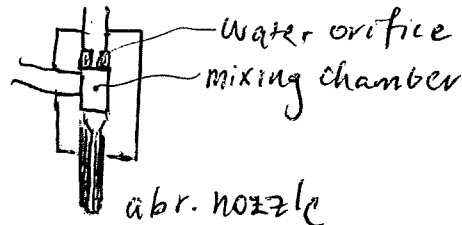 water orifice
mixing chamber
abr. nozzle